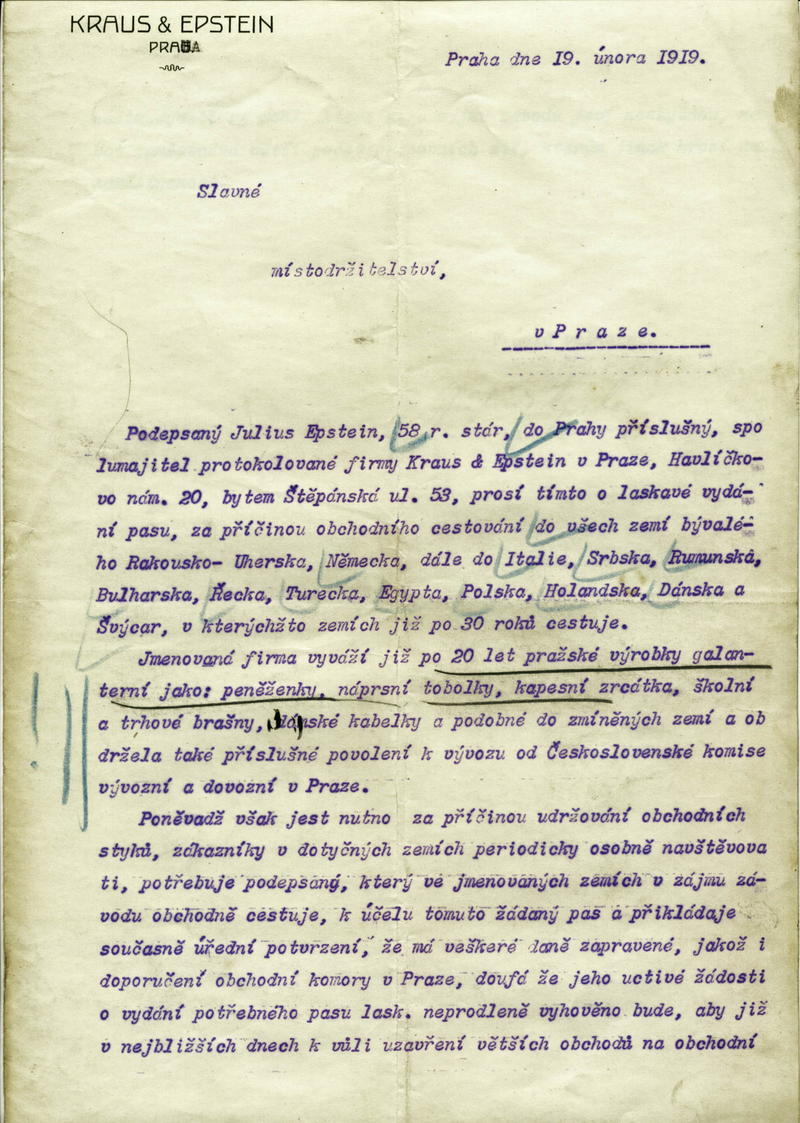 KRAUS & EPSTEIN
PRAHA
Praha dne 19. února 1919.
Slavné
místodržitelství,
v P r a z e.
Podepsaný Julius Epstein, 58 r. stár, do Prahy příslušný, spo
lumajitel protokolované firmy Kraus & Epstein v Praze, Havlíčko-
vo nám. 20, bytem Štěpánská ul. 53, prosí tímto o laskavé vydá-
ní pasu, za příčinou obchodního cestování do všech zemí bývalé-
ho Rakousko- Uherska, Německa, dále do Italie, Srbska, Rumunská,
Bulharska, Řecka, Turecka, Egypta, Polska, Holandska, Dánska a
Švýcar, v kterýchžto zemích již po 30 roků cestuje.
Jmenovaná firma vyváží již po 20 let pražské výrobky galan-
terní jako: peněženky, náprsní tobolky, kapesní zrcátka, školní
a trhové brašny, dámské kabelky a podobné do zmíněných zemí a ob
držela také příslušné povolení k vývozu od Československé komise
vývozní a dovozní v Praze.
Poněvadž však jest nutno za příčinou udržování obchodních
styků, zákazníky v dotyčných zemích periodicky osobně navštěvova
ti, potřebuje podepsaný, který ve jmenovaných zemích v zájmu zá-
vodu obchodně cestuje, k účelu tomuto žádaný pas a přikládaje
současně úřední potvrzení, že má veškeré daně zapravené, jakož i
doporučení obchodní komory v Praze, doufá že jeho uctivé žádosti
o vydání potřebného pasu lask. neprodleně vyhověno bude, aby již
v nejbližších dnech k vůli uzavření větších obchodů na obchodní